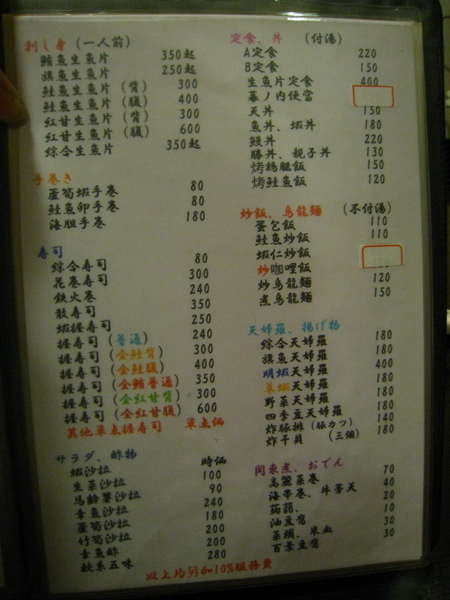 刺し身 (一人前)
鮪魚生魚片 350起
旗魚生魚片 250起
鮭魚生魚片 (背) 300
鮭魚生魚片 (腹) 400
紅甘生魚片 (背) 300
紅甘生魚片 (腹) 600
綜合生魚片 350起
手巻き
蘆筍蝦手卷 80
鮭魚卵手卷 80
海胆手卷 180
寿司
綜合寿司 80
花卷寿司 300
鉄火卷 240
散寿司 350
蝦握寿司 250
握寿司 (普通) 240
握寿司 (全鮭背) 300
握寿司 (全鮭腹) 400
握寿司 (全鮪普通) 350
握寿司 (全紅甘背) 300
握寿司 (全紅甘腹) 600
其他單点握寿司 單点価
サラダ、酢物
蝦沙拉 時価
生菜沙拉 100
馬鈴薯沙拉 90
章魚沙拉 240
蘆筍沙拉 180
竹筍沙拉 200
章魚酢 200
軟絲五味 280
定食、丼 (付湯)
A定食 220
B定食 150
生魚片定食 400
幕ノ内便當
天丼 150
魚丼、蝦丼 180
鰻丼 220
勝丼、親子丼 130
烤鷄腿飯 150
烤鮭魚飯 120
炒飯、烏龍麵 (不付湯)
蛋包飯 110
鮭魚炒飯 110
蝦仁炒飯
炒咖哩飯
炒烏龍麵 120
煮烏龍麵 150
天婦羅、揚げ物
綜合天婦羅 180
旗魚天婦羅 180
明蝦天婦羅 400
草蝦天婦羅 180
野菜天婦羅 180
四季豆天婦羅 180
炸豚排 (豚カツ) 140
炸干貝 (三個) 180
関東煮、おでん
高麗菜卷 70
海帶卷、牛蒡天 40
蒟蒻、 20
油豆腐 10
菜頭、米血 30
百景豆腐 30
以上均另加10%服務費